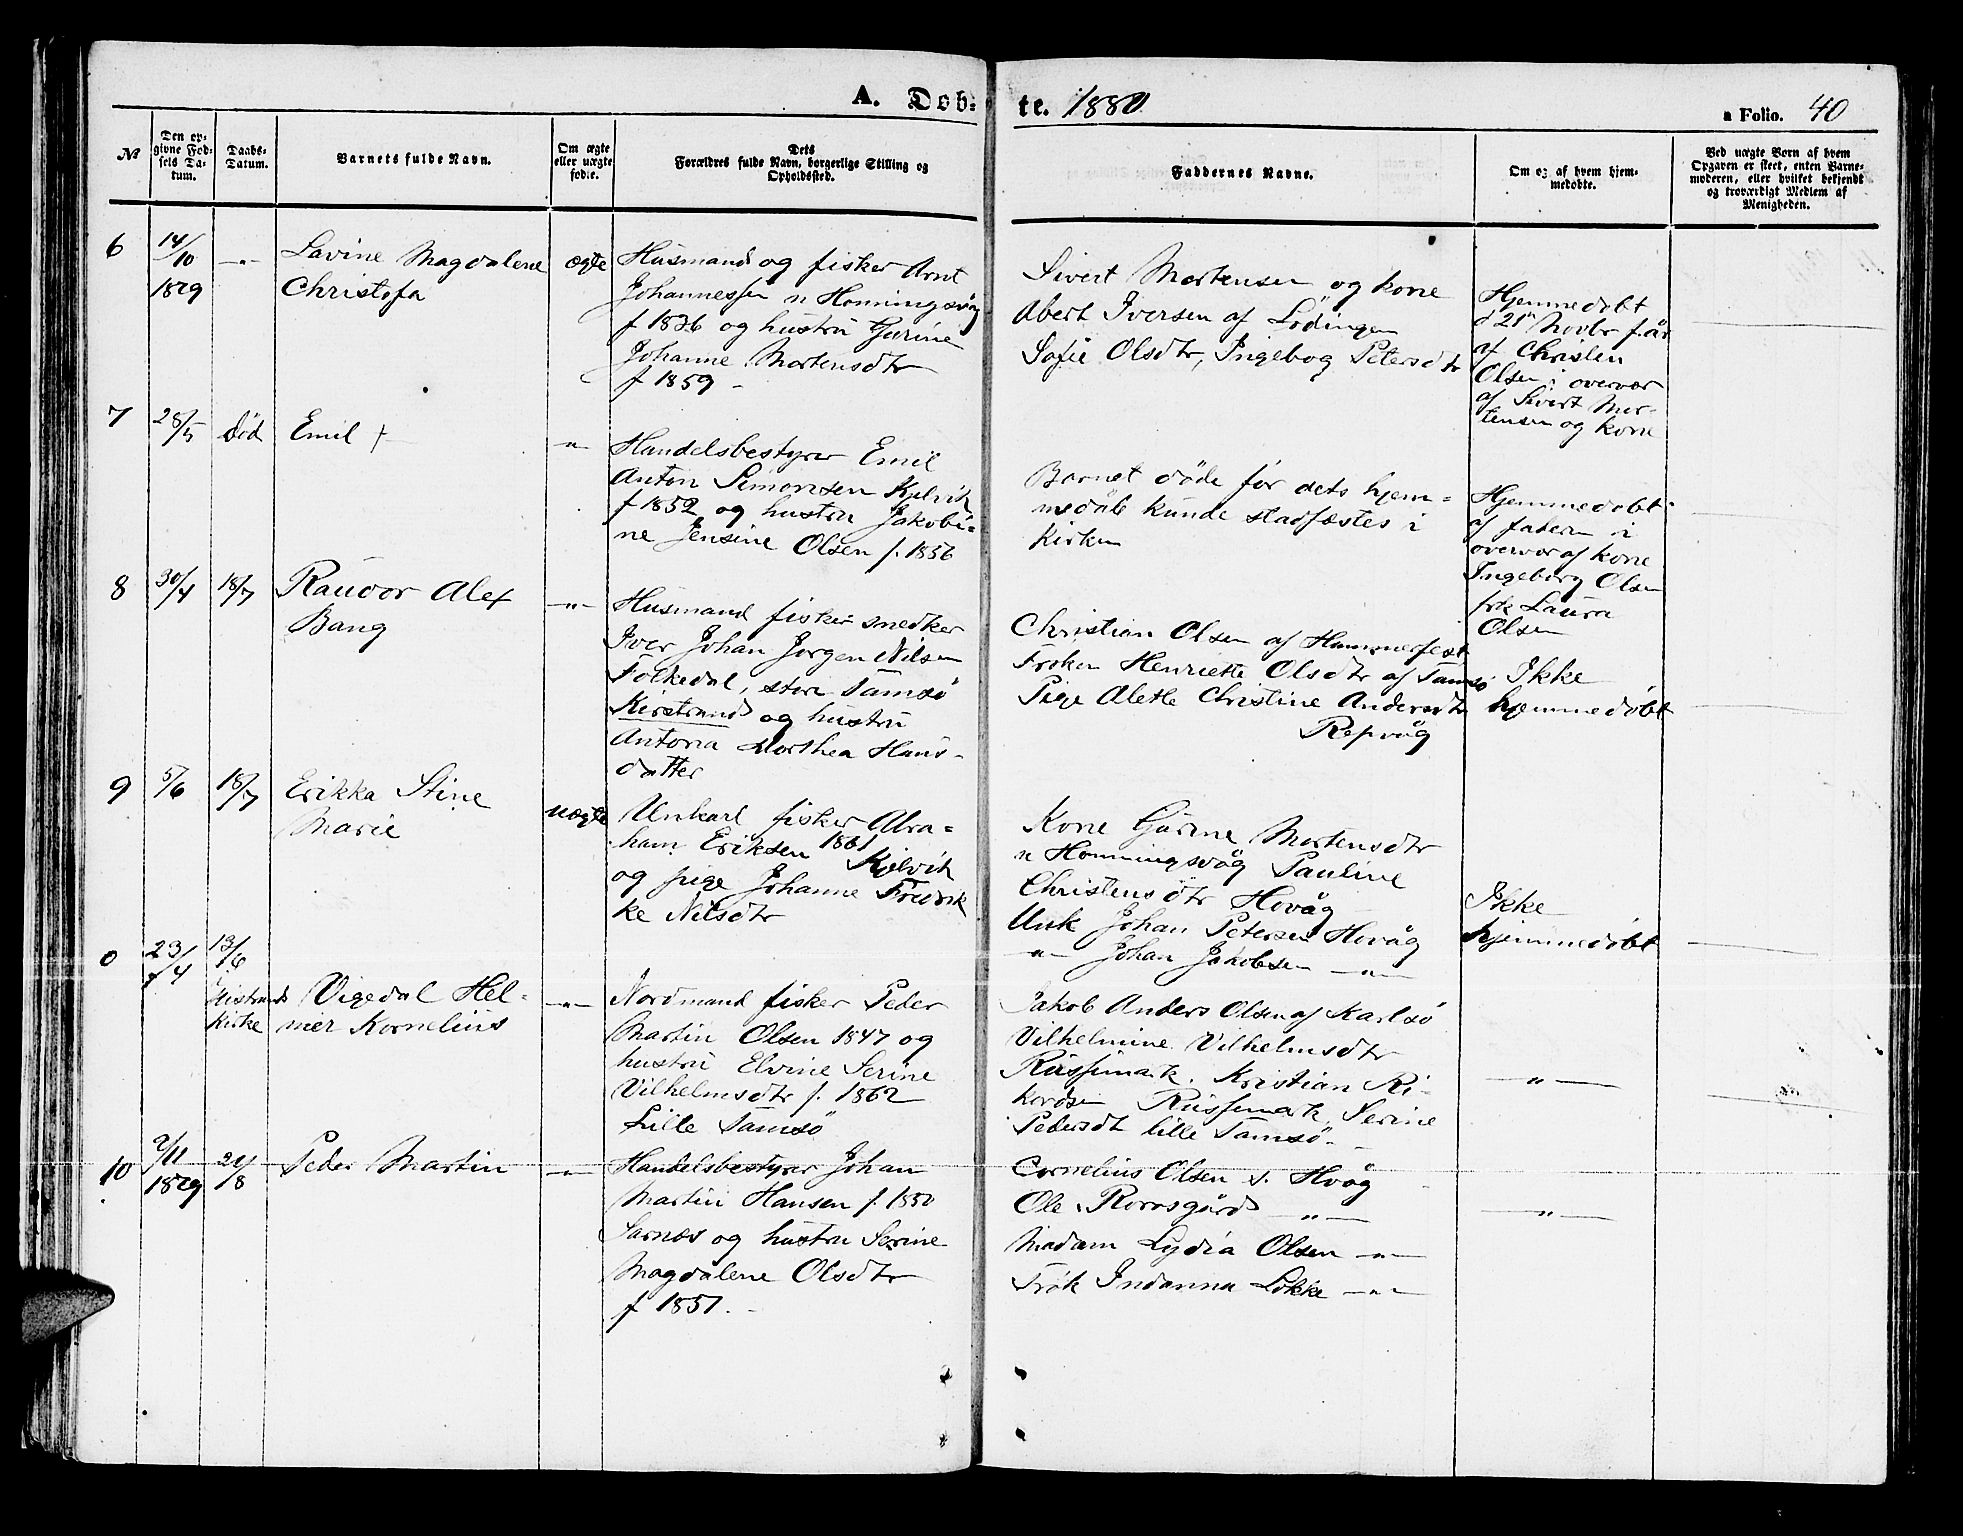 A. Døb-
te. 1880
a Folio. 40
№
Den opgivne Fødsels Datum.
Daabs-Datum.
Barnets fulde Navn.
Om ægte eller uægte fødte.
Dets Forældres fulde Navn, borgerlige Stilling og Opholdssted.
Faddernes Navne.
Om og af hvem hjemmedøbte.
Ved uægte Børn af hvem Opgaven er skeet, enten Barnemoderen, eller hvilket bekjendt og troværdigt Medlem af Menigheden.
6
14/10
1879
-"-
Lavine Magdalene
Christofa
ægte
Husmand og fisker Arnt
Johannessen n Honningsvåg
f 1836 og hustru Gurine
Johanne Mortensdtr
f 1859 -
Sivert Mortensen og kone
Abert Iversen af Lødingen
Sofie Olsdtr, Ingebog Petersdtr
Hjemmedøbt
d 21n Novbr f. år
af Christen
Olsen i overvær
af Sivert Mor-
tensen og kone
7
28/5
død
Emil +
-"-
Handelsbestyrer Emil
Anton Simonsen Kjelvik
f 1852 og hustru Jakobi-
ne Jensine Olsen f. 1856
Barnet døde før dets hjem-
medåb kunde stadfæstes i
Kirken
Hjemmedøbt
af faderen i
overvær af kone
Ingeborg Olsen
frk Laura
Olsen
8
30/4
18/7
Raudor Alex
Bang
-"-
Husmand fisker snedker
Iver Johan Jørgen Nilsen
Folkedal, store Tamsø
Kistrand og hustru
Antona Dorthea Hans-
datter
Christian Olsen af Hammerfest
Frøken Henriette Olsdtr af Tamsø
Pige Alette Christine Andersdtr
Repvåg
Ikke
hjemmedøbt
9
5/6
18/7
Erikka Stine
Marie
uægte
Unkarl fisker Abra-
ham Eriksen 1861
Kjelvik
og pige Johanne Fredrik
ke Nilsdtr
Kone Gurine Mortensdtr
n Honningsvåg Pauline
Christensdtr Hovåg
Unk Johan Petersen Hovåg
-"- Johan Jakobsen -"-
Ikke
hjemmedøbt
0
23/4
13/6
Kistrands
Kirke
Vigedal Hel-
mer Kornelius
-"-
Nordmand fisker Peder
Martin Olsen 1847 og
hustru Elvine Serine
Vilhelmsdtr f. 1862
Lille Tamsø
Jakob Anders Olsen af Karlsø
Vilhelmine Vilhelmsdtr
Russemark. Kristian Ri-
kordsen Russemark Serine
Pedersdt lille Tamsø -
-"-
10
2/11
1879
21/8
Peder Martin
-"-
Handelsbestyrer Johan
Martin Hansen f. 1850
Sarnes og hustru Serine
Magdalene Olsdtr
f 1857. -
Cornelius Olsen s. Hvåg
Ole Rorosgård -"-
Madam Lydia Olsen -"-
Frøk Indanna Løkke -"-
-"-